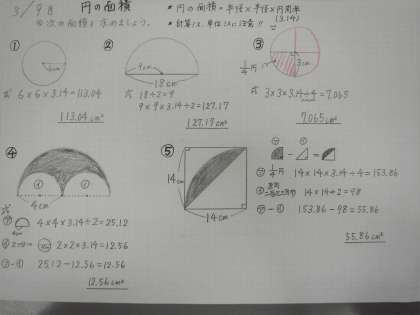 3/98 円の面積 * 円の面積 = 半径×半径×円周率 (3.14)
◎次の面積を求めましょう。 * 計算ミス、単位ミスに注意!!
①
6cm
式 6×6×3.14=113.04
113.04cm²
②
9cm
18cm
式 18÷2=9
9×9×3.14÷2=127.17
127.17cm²
③
3cm
1/4円
式 3×3×3.14÷4=7.065
7.065cm²
④
4cm
式
㋐ 4×4×3.14÷2=25.12
4cm
2×2×3.14=12.56
㋐-㋑ 25.12-12.56=12.56
12.56cm²
⑤
14cm
14cm
㋐ ㋑
㋐ 1/4円 14×14×3.14÷4=153.86
㋑ 14×14÷2=98
㋐-㋑ 153.86-98=55.86
55.86cm²